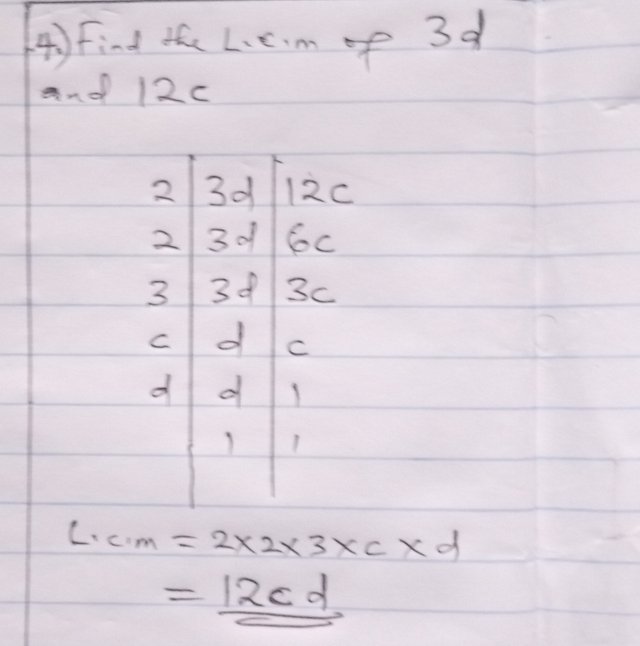 4.) Find the L.c.m of 3d
and 12c
2 | 3d | 12c
2 | 3d | 6c
3 | 3d | 3c
c | d | c
d | d | 1
| 1 | 1
L.c.m = 2x2x3xcxd
= 12cd